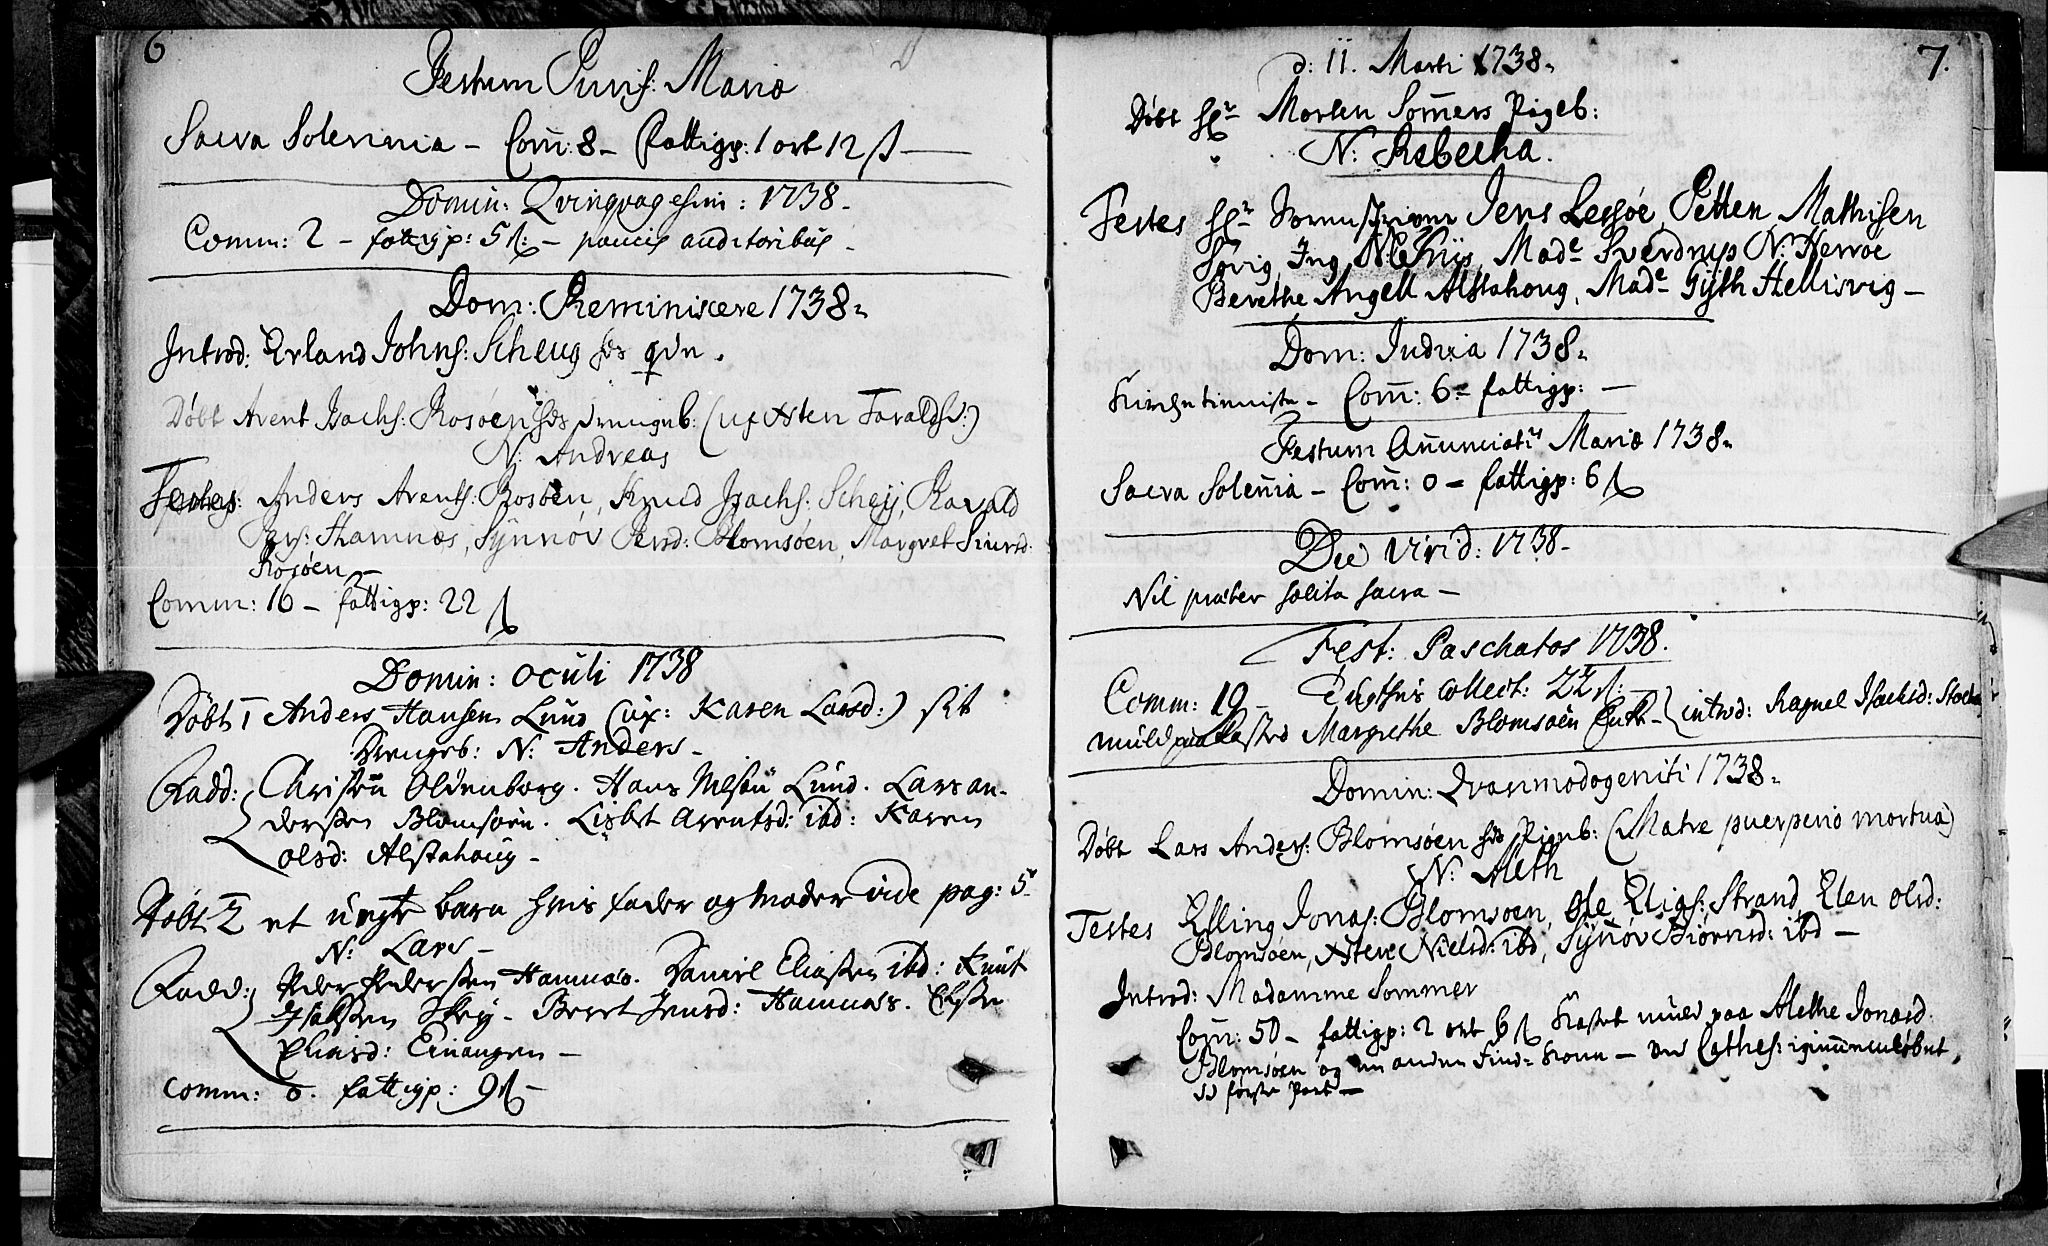 6
Festum Purif: Mariæ
Sacra Solennia – Com̄: 8 – fattigp: 1 ort 12 ß
Domin: Qvinqvagesim: 1738 –
Comm: 2 – fattigp: 5 ß: – paucis auditoribus –
Dom: Reminiscere 1738
Introd: Erland Johns: Scheug hs qvn.
Døbt Arent Isachs: Rosøen hs drengeb: (ux Xsten Faralds:)
N: Andreas
Testes: Anders Arents: Rosøen, Knud Isachs: Scheij, Ravald
Hamnæs, Synnøv Blomsøen, Margret Siursd:
Rosøen –
Comm: 16 – fattigp: 22 ß
Domin: Oculi 1738
Døbt 1 Anders Hansen Lund (ux: Karen Larsd:) sit
Drengeb: N: Anders –
Fadd: Christen Oldenborg. Hans Nelsøn Lund. Lars an-
dersen Blomsøen. Lisbet Arentsd: ibd: Karen
olsd: Alstahaug –
Døbt 2 et uegte barn hvis fader og Moder vide pag: 5
N: Lars –
Fadd: Peder Pedersen Hamnæs. Daniel Eliasen ibd: Knut
Isaksen Skey – Beret Jensd: Hamnæs.
Eliasd: Einangen –
Comm: 0. fattigp: 9 ß –
7.
d: 11. Marti 1738
Døbt Hr Morten Som̄ers Pigeb:
N: Rebecha.
Testes Hr Sorenskriver Jens Lessøe, Petter Mathisen
Søvig, Ing Friis, Mad: Sverdrup N: Herrøe
Berethe Angell Alstahoug, Mad: Gijth Hellisvig –
Dom: Judica 1738
Com̄: 6 – fattigp: –
Festum An̄unciat: Mariæ 1738
Sacra Solen̄ia – Com̄: 0 – fattigp: 6 ß
Die Virid: 1738 –
Nil præter solita sacra –
Fest: Paschatos 1738.
Comm: 19 – collect: 22 ß:
muld paa Kasted Margrethe Blomsøen Enke – } introd: Ragnel Isachsd:
Domin: Qvasimodogeniti 1738
Døbt Lars Anders: Blomsøen hs Pigeb: (Matre puerperio mortua)
N: Aleth
Testes Elling Jonas: Blomsøen, Ole Elias: Strand, Elen Olsd:
Blomsøen, Xsten Nielsd: ibd, Synøv Biørnsd: ibd –
Introd: Madamme Sommer
Com̄: 50 – fattigp: 2 ort 6 ß Kastet muld paa Alethe Jonasd
Blomsøen og en anden Find-kone –
første Part –